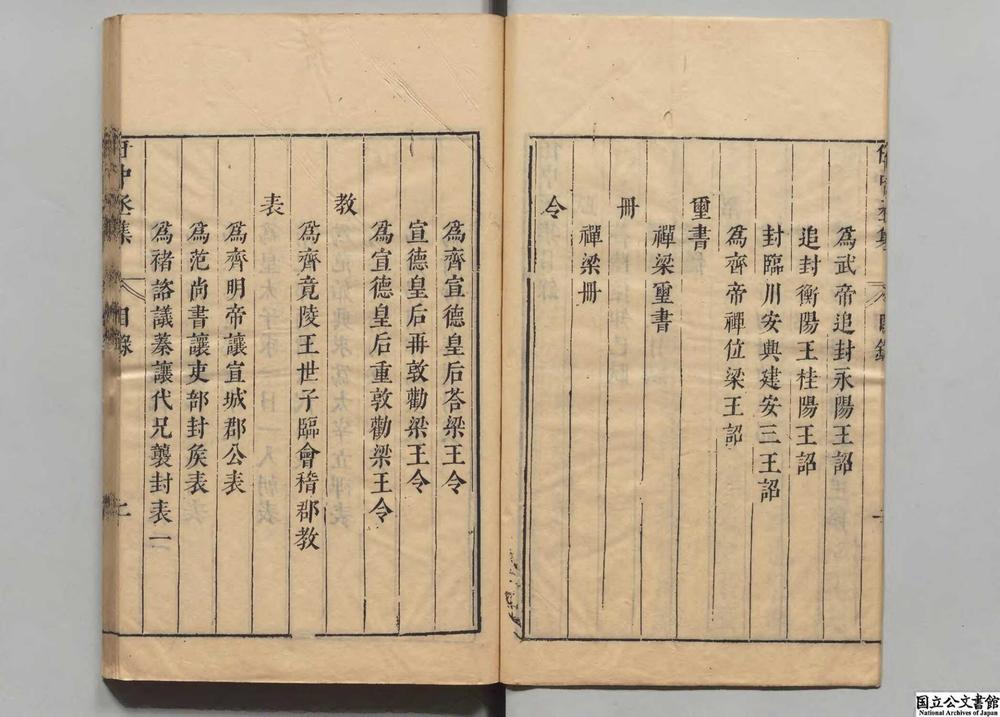 爲武帝追封永陽王詔
追封衡陽王桂陽王詔
封臨川安興建安三王詔
爲齊帝禪位梁王詔
璽書
禪梁璽書
冊
禪梁冊
令
爲齊宣德皇后荅梁王令
宣德皇后再敦勸梁王令
爲宣德皇后重敦勸梁王令
教
爲齊竟陵王世子臨會稽郡教
表
爲齊明帝讓宣城郡公表
爲范尚書讓吏部封矦表
爲褚諮議蓁讓代兄襲封表一
中丞集
目錄
二
国立公文書館
National Archives of Japan